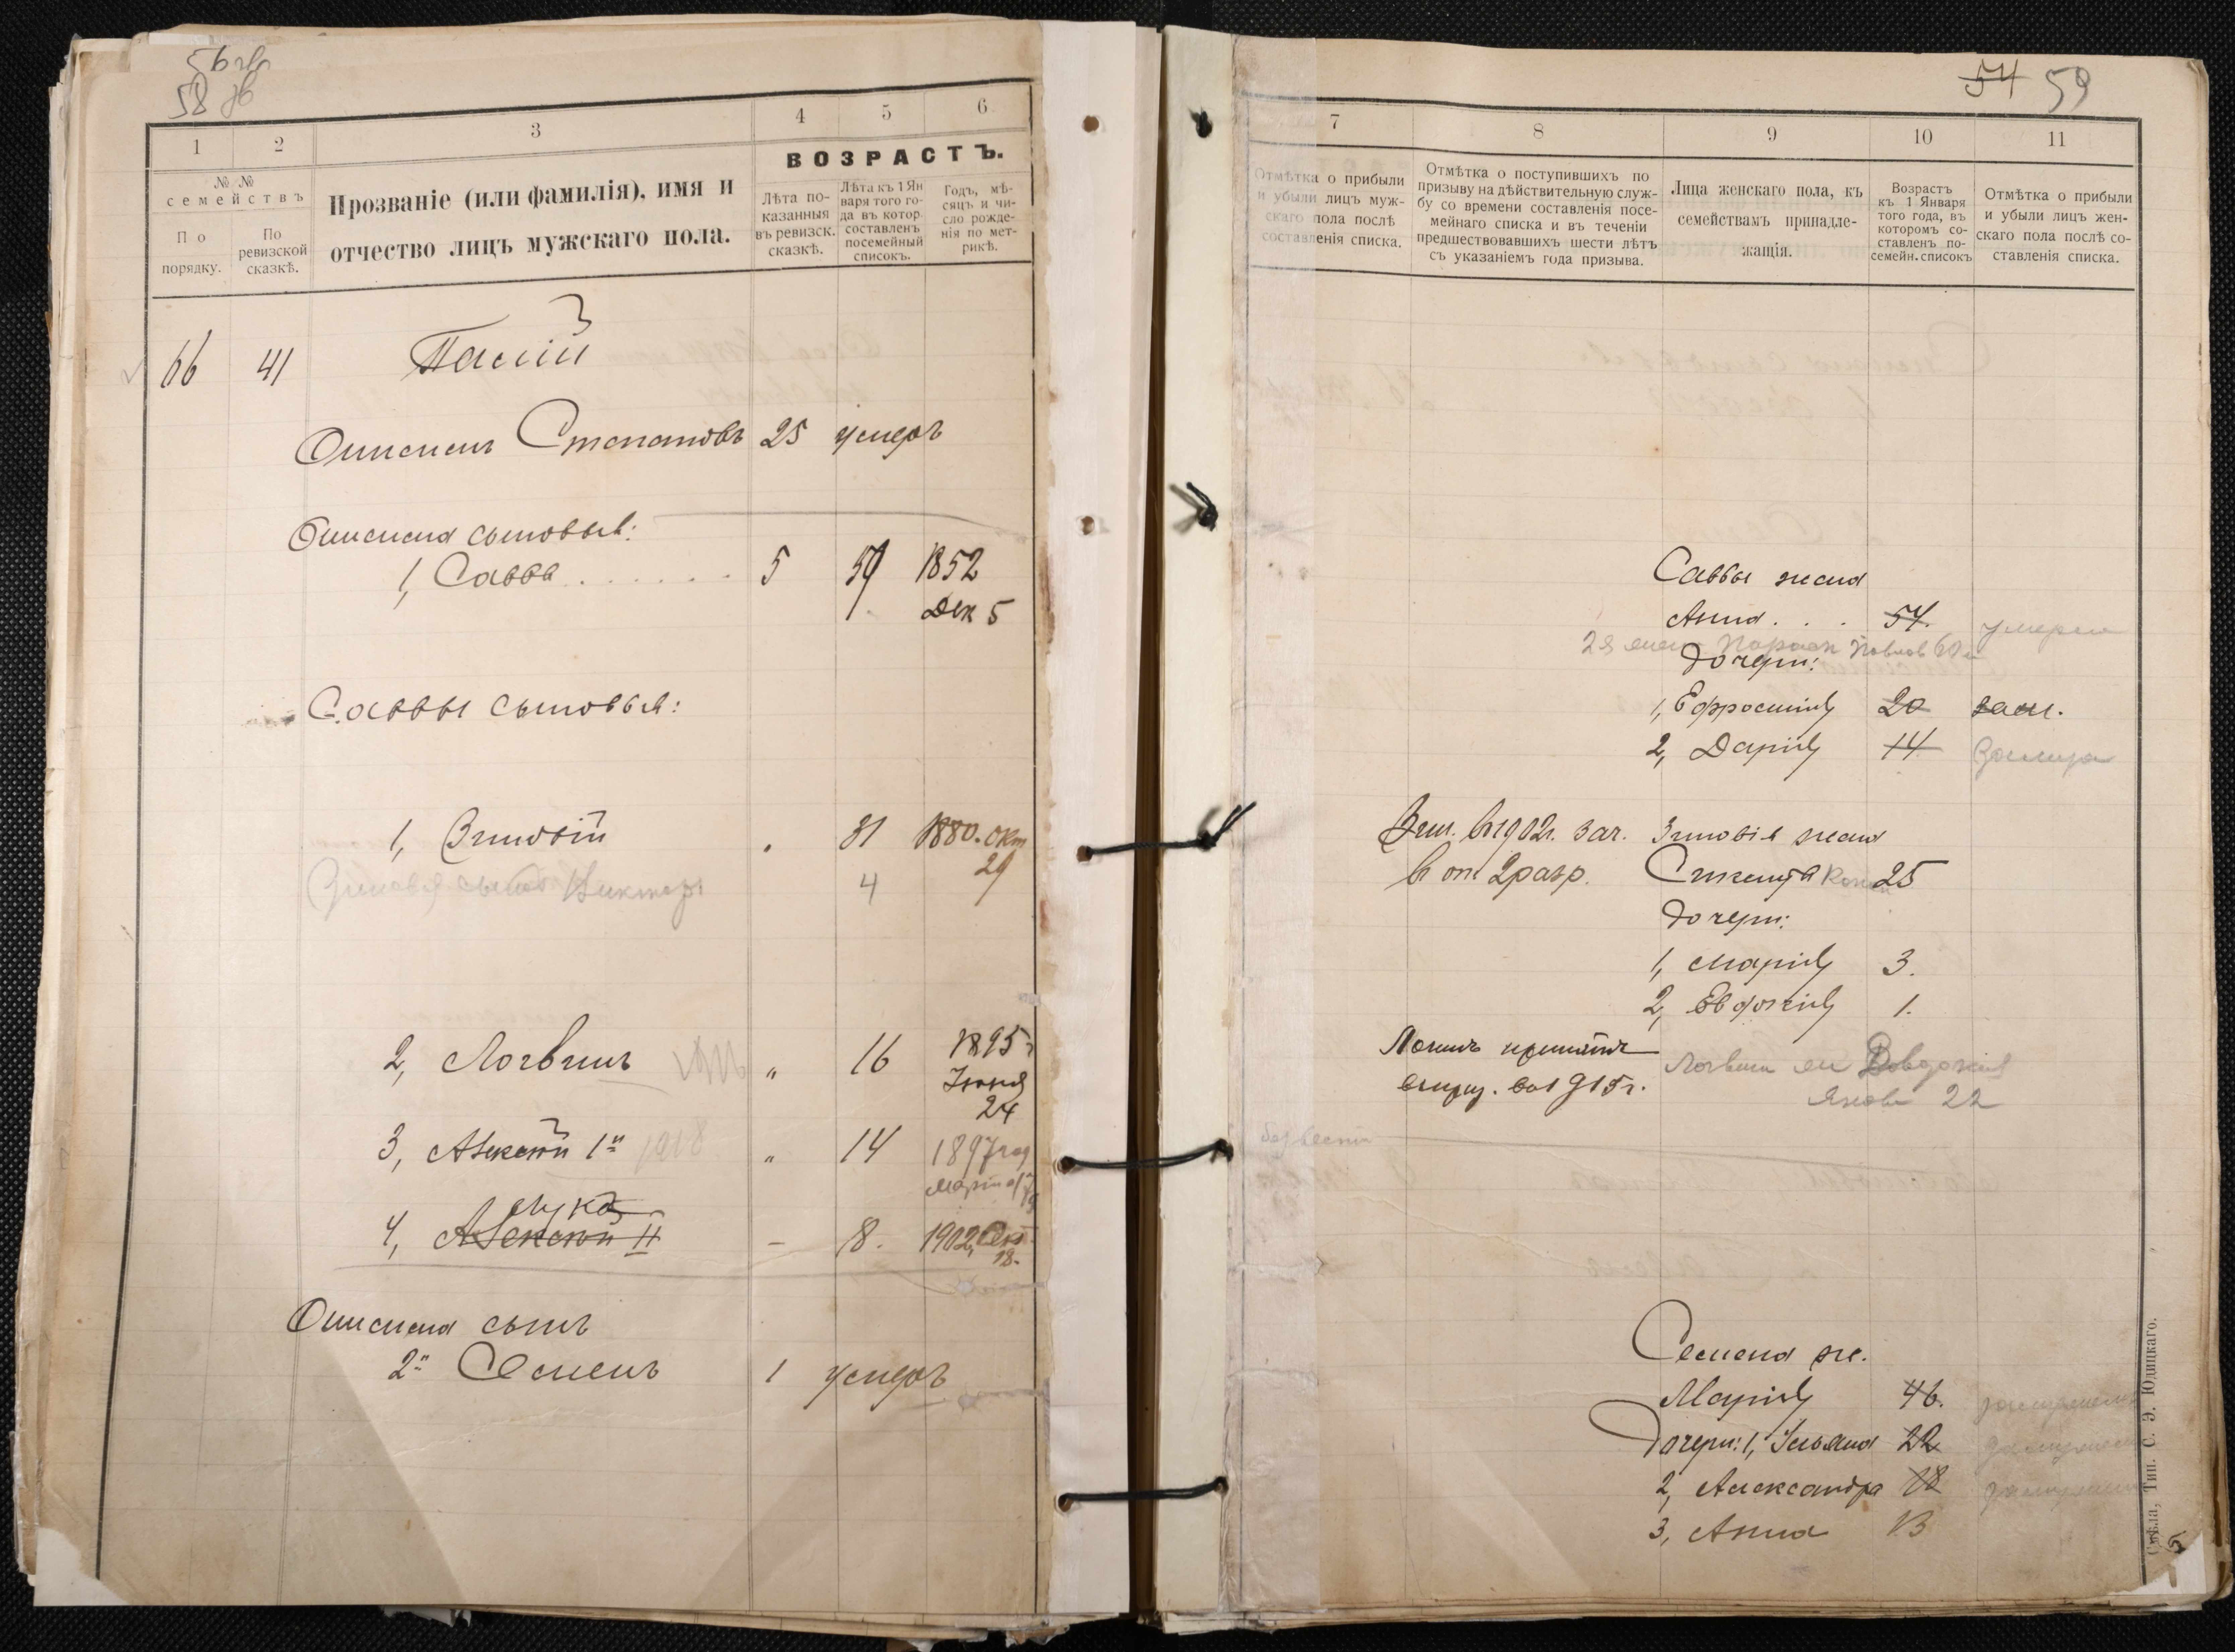 56 зв
58 зв
1
2
3
4
5
6
№ №
семействъ
По порядку.
По ревизской сказкѣ.
Прозваніе (или фамилія), имя и
отчество лицъ мужскаго пола.
ВОЗРАСТЪ.
Лѣта по-
казанныя
въ ревизск.
сказкѣ.
Лѣта къ 1 Ян
варя того го-
да въ котор.
составленъ
посемейный
списокъ.
Годъ, мѣ-
сяцъ и чи-
сло рожде-
нія по мет-
рикѣ.
66 41 Палій
Онисимъ Степановъ 25 умеръ
Онисима сыновья:
1, Савва 5 59 1852
Дек 5
Саввы сыновья:
1, Зиновій 31 1880. окт
29
Зиновія сынъ Викторъ 4
2, Логвинъ " 16 1895 г
Іюня
24
3, Алексѣй 1й 1918 " 14 1897 год
Марта 17
Лука
4, Алексѣй II - 8. 1902, Окт
18.
Онисима сынъ
2й Семенъ 1 умеръ
54 59
7
8
9
10
11
Отмѣтка о прибыли
и убыли лицъ муж-
скаго пола послѣ
составленія списка.
Отмѣтка о поступившихъ по
призыву на дѣйствительную служ-
бу со времени составленія посе-
мейнаго списка и въ теченіи
предшествовавшихъ шести лѣтъ
съ указаніемъ года призыва.
Лица женскаго пола, къ
семействамъ принадле-
жащія.
Возрастъ
къ 1 Января
того года, въ
которомъ со-
ставленъ по-
семейн. списокъ
Отмѣтка о прибыли
и убыли лицъ жен-
скаго пола послѣ со-
ставленія списка.
Саввы жена
Анна . . . 54. умерла
2я жена Параск Павлов 60
Дочери:
1, Ефросинія 20 зам.
2, Дарія 14 Замуж
Зин. въ 1902г. зач. Зиновія жена
в оп. 2 разр. 25
Дочери:
1, Марія 3.
2, Евдокія 1.
Логвинъ принятъ
въ 1915 г.
Логвина жен Евдокія
Яков 22
безвести
Семена ж.
Марія 46. замужем
Дочери: 1, Ульяна 22 замужем
2, Александра 18 замужем
3, Анна 13
Смѣла, Тип. С. Э. Юдицкаго.